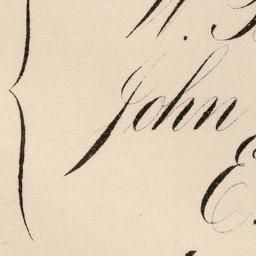 W.
John
E.